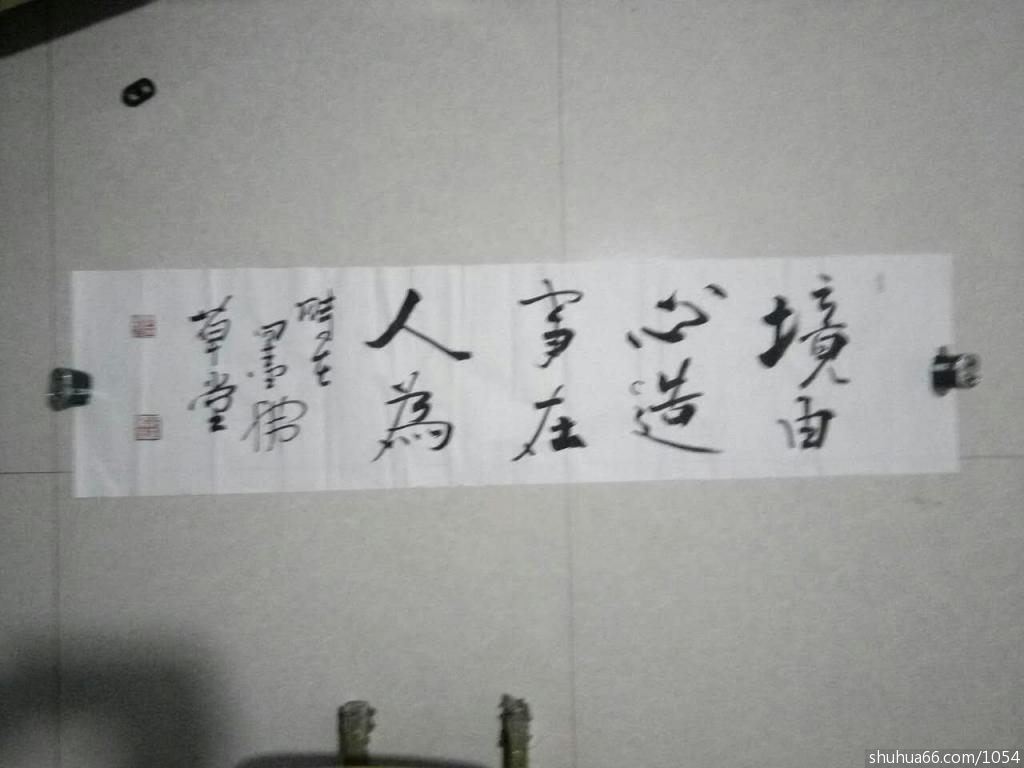 境由
心造
事在
人為
時在
草堂
shuhua66.com/1054